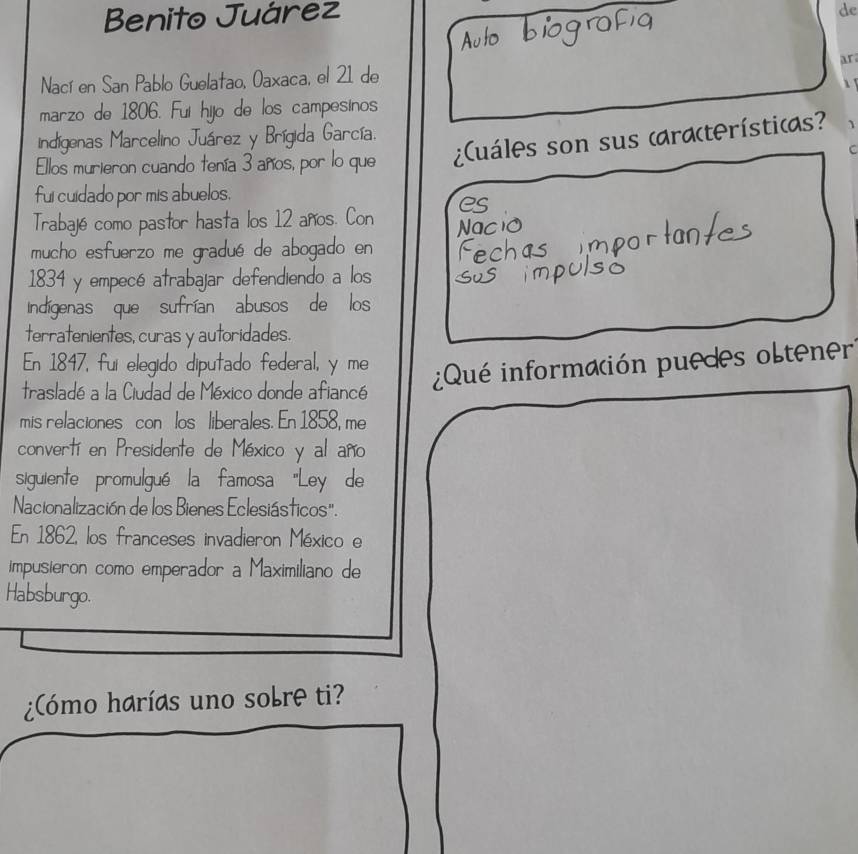 Benito Juárez
Nací en San Pablo Guelatao, Oaxaca, el 21 de
marzo de 1806. Fui hijo de los campesinos
indígenas Marcelino Juárez y Brígida García.
Ellos murieron cuando tenía 3 años, por lo que
fui cuidado por mis abuelos.
Trabajé como pastor hasta los 12 años. Con
mucho esfuerzo me gradué de abogado en
1834 y empecé atrabajar defendiendo a los
indígenas que sufrían abusos de los
terratenientes, curas y autoridades.
En 1847, fui elegido diputado federal, y me
trasladé a la Ciudad de México donde afiancé
mis relaciones con los liberales. En 1858, me
convertí en Presidente de México y al año
siguiente promulgué la famosa "Ley de
Nacionalización de los Bienes Eclesiásticos".
En 1862, los franceses invadieron México e
impusieron como emperador a Maximiliano de
Habsburgo.
¿Cómo harías uno sobre ti?
Auto biografia
¿Cuáles son sus características?
es
Nacio
Fechas importantes
sus impulso
¿Qué información puedes obtener
de